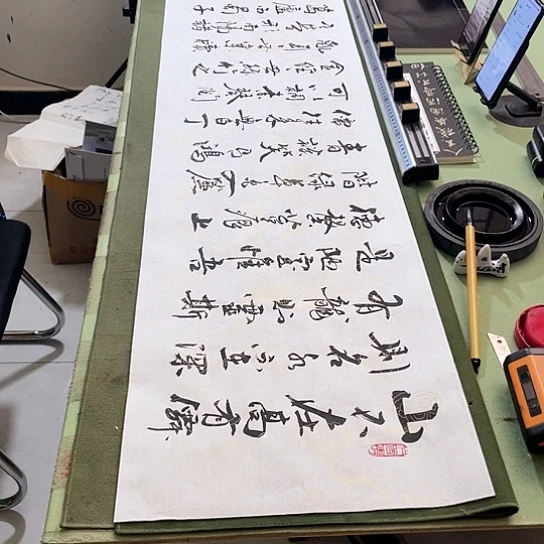 山不在高有僊
則名水不在深
有龍則靈斯
是陋室惟吾
德馨苔痕上
階綠草色入簾
青談笑有鴻
儒往來無白丁
可以調素琴閱
金經無絲竹之
亂耳無案牘
之勞形南陽諸
葛廬西蜀子